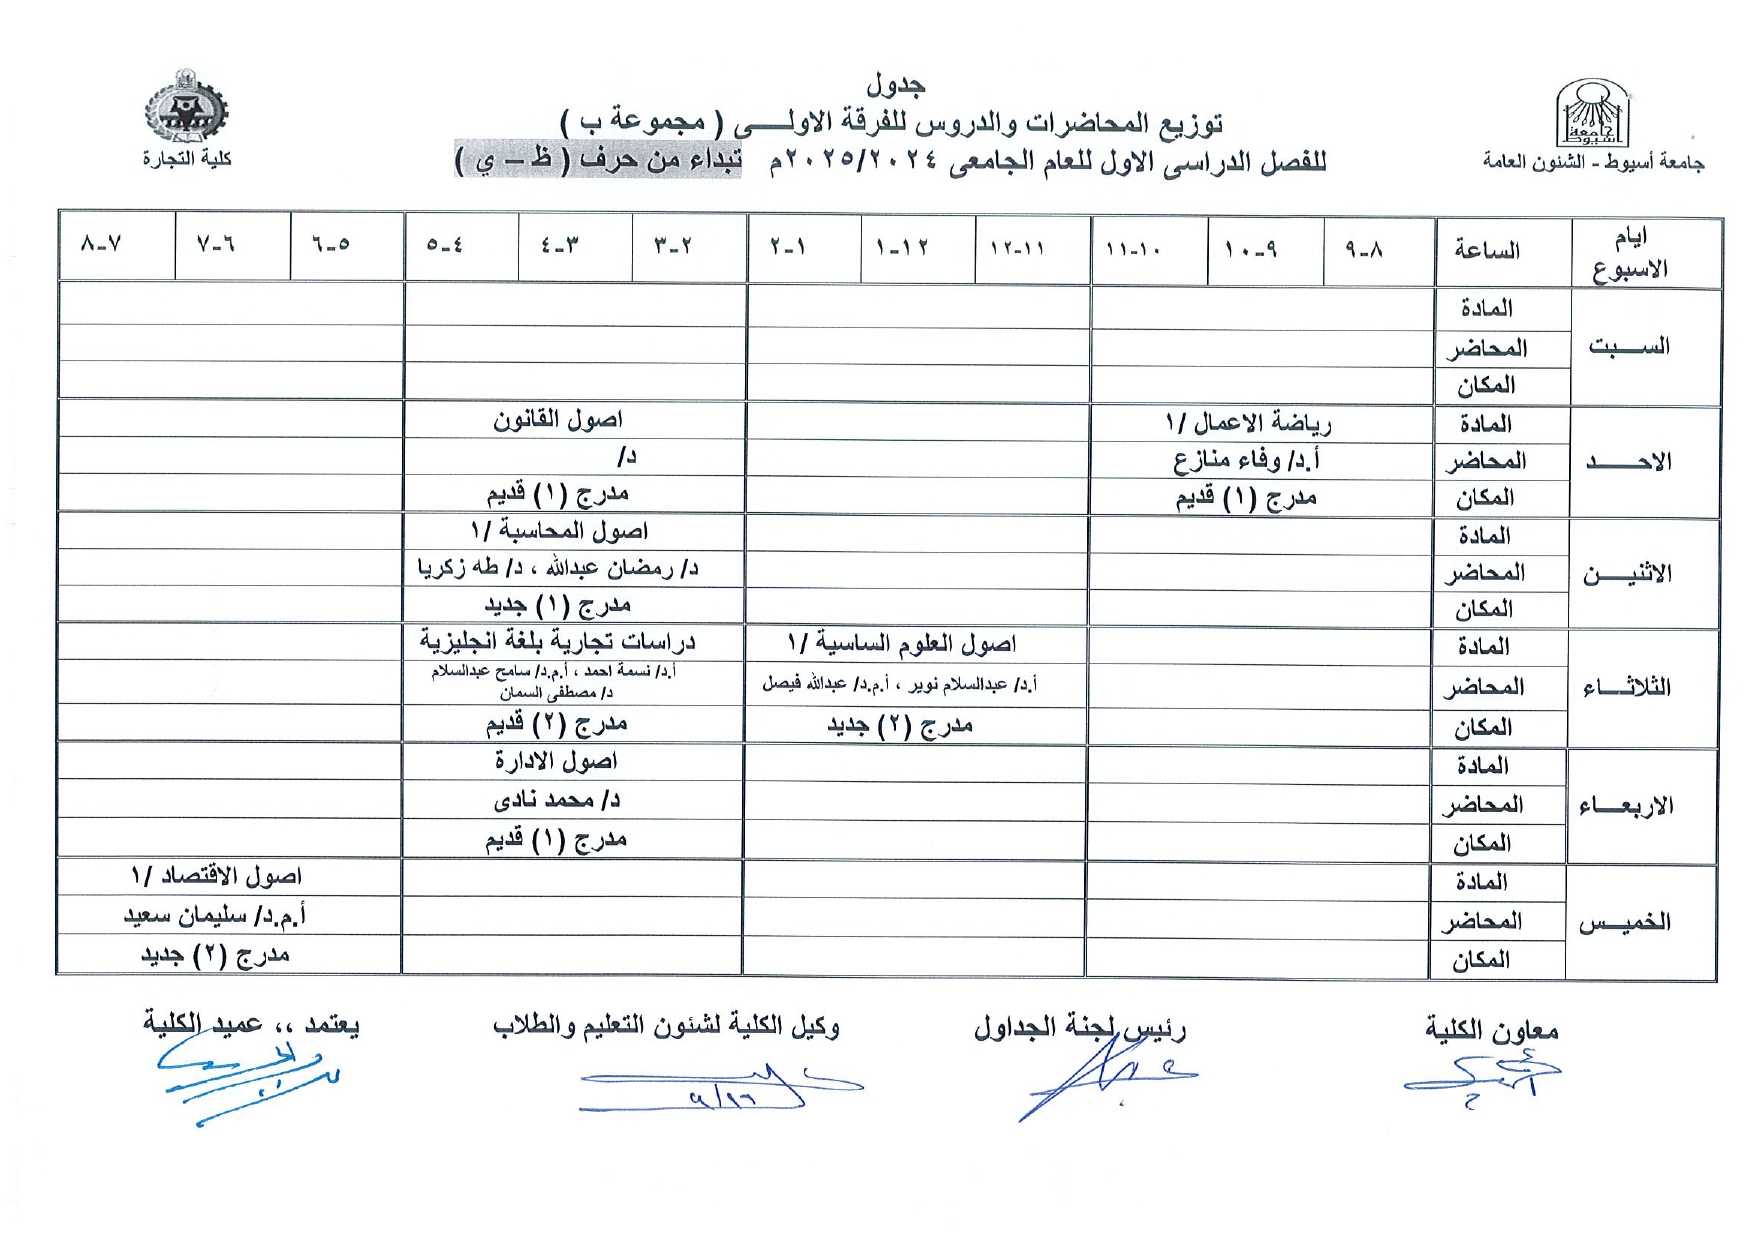 جدول
توزيع المحاضرات والدروس للفرقة الاولــــى ( مجموعة ب )
للفصل الدراسى الاول للعام الجامعى ٢٠٢٥/٢٠٢٤م تبداء من حرف ( ظ – ي )
جامعة أسيوط
جامعة أسيوط - الشئون العامة
كلية التجارة
ايام الاسبوع الساعة ٨-٩ ٩-١٠ ١٠-١١ ١١-١٢ ١٢-١ ١-٢ ٢-٣ ٣-٤ ٤-٥ ٥-٦ ٦-٧ ٧-٨
الســــبت
المادة
المحاضر
المكان
الاحــــــد
المادة رياضة الاعمال /١ اصول القانون
المحاضر أ.د/ وفاء منازع د/
المكان مدرج (١) قديم مدرج (١) قديم
الاثنيـــن
المادة اصول المحاسبة /١
المحاضر د/ رمضان عبدالله ، د/ طه زكريا
المكان مدرج (١) جديد
الثلاثــــاء
المادة اصول العلوم الساسية /١ دراسات تجارية بلغة انجليزية
المحاضر أ.د/ عبدالسلام نوير ، أ.م.د/ عبدالله فيصل أ.د/ نسمة احمد ، أ.م.د/ سامح عبدالسلام
د/ مصطفى السمان
المكان مدرج (٢) جديد مدرج (٢) قديم
الاربعــــاء
المادة اصول الادارة
المحاضر د/ محمد نادى
المكان مدرج (١) قديم
الخميـــس
المادة اصول الاقتصاد /١
المحاضر أ.م.د/ سليمان سعيد
المكان مدرج (٢) جديد
معاون الكلية رئيس لجنة الجداول وكيل الكلية لشئون التعليم والطلاب يعتمد ،، عميد الكلية
٩/١٦